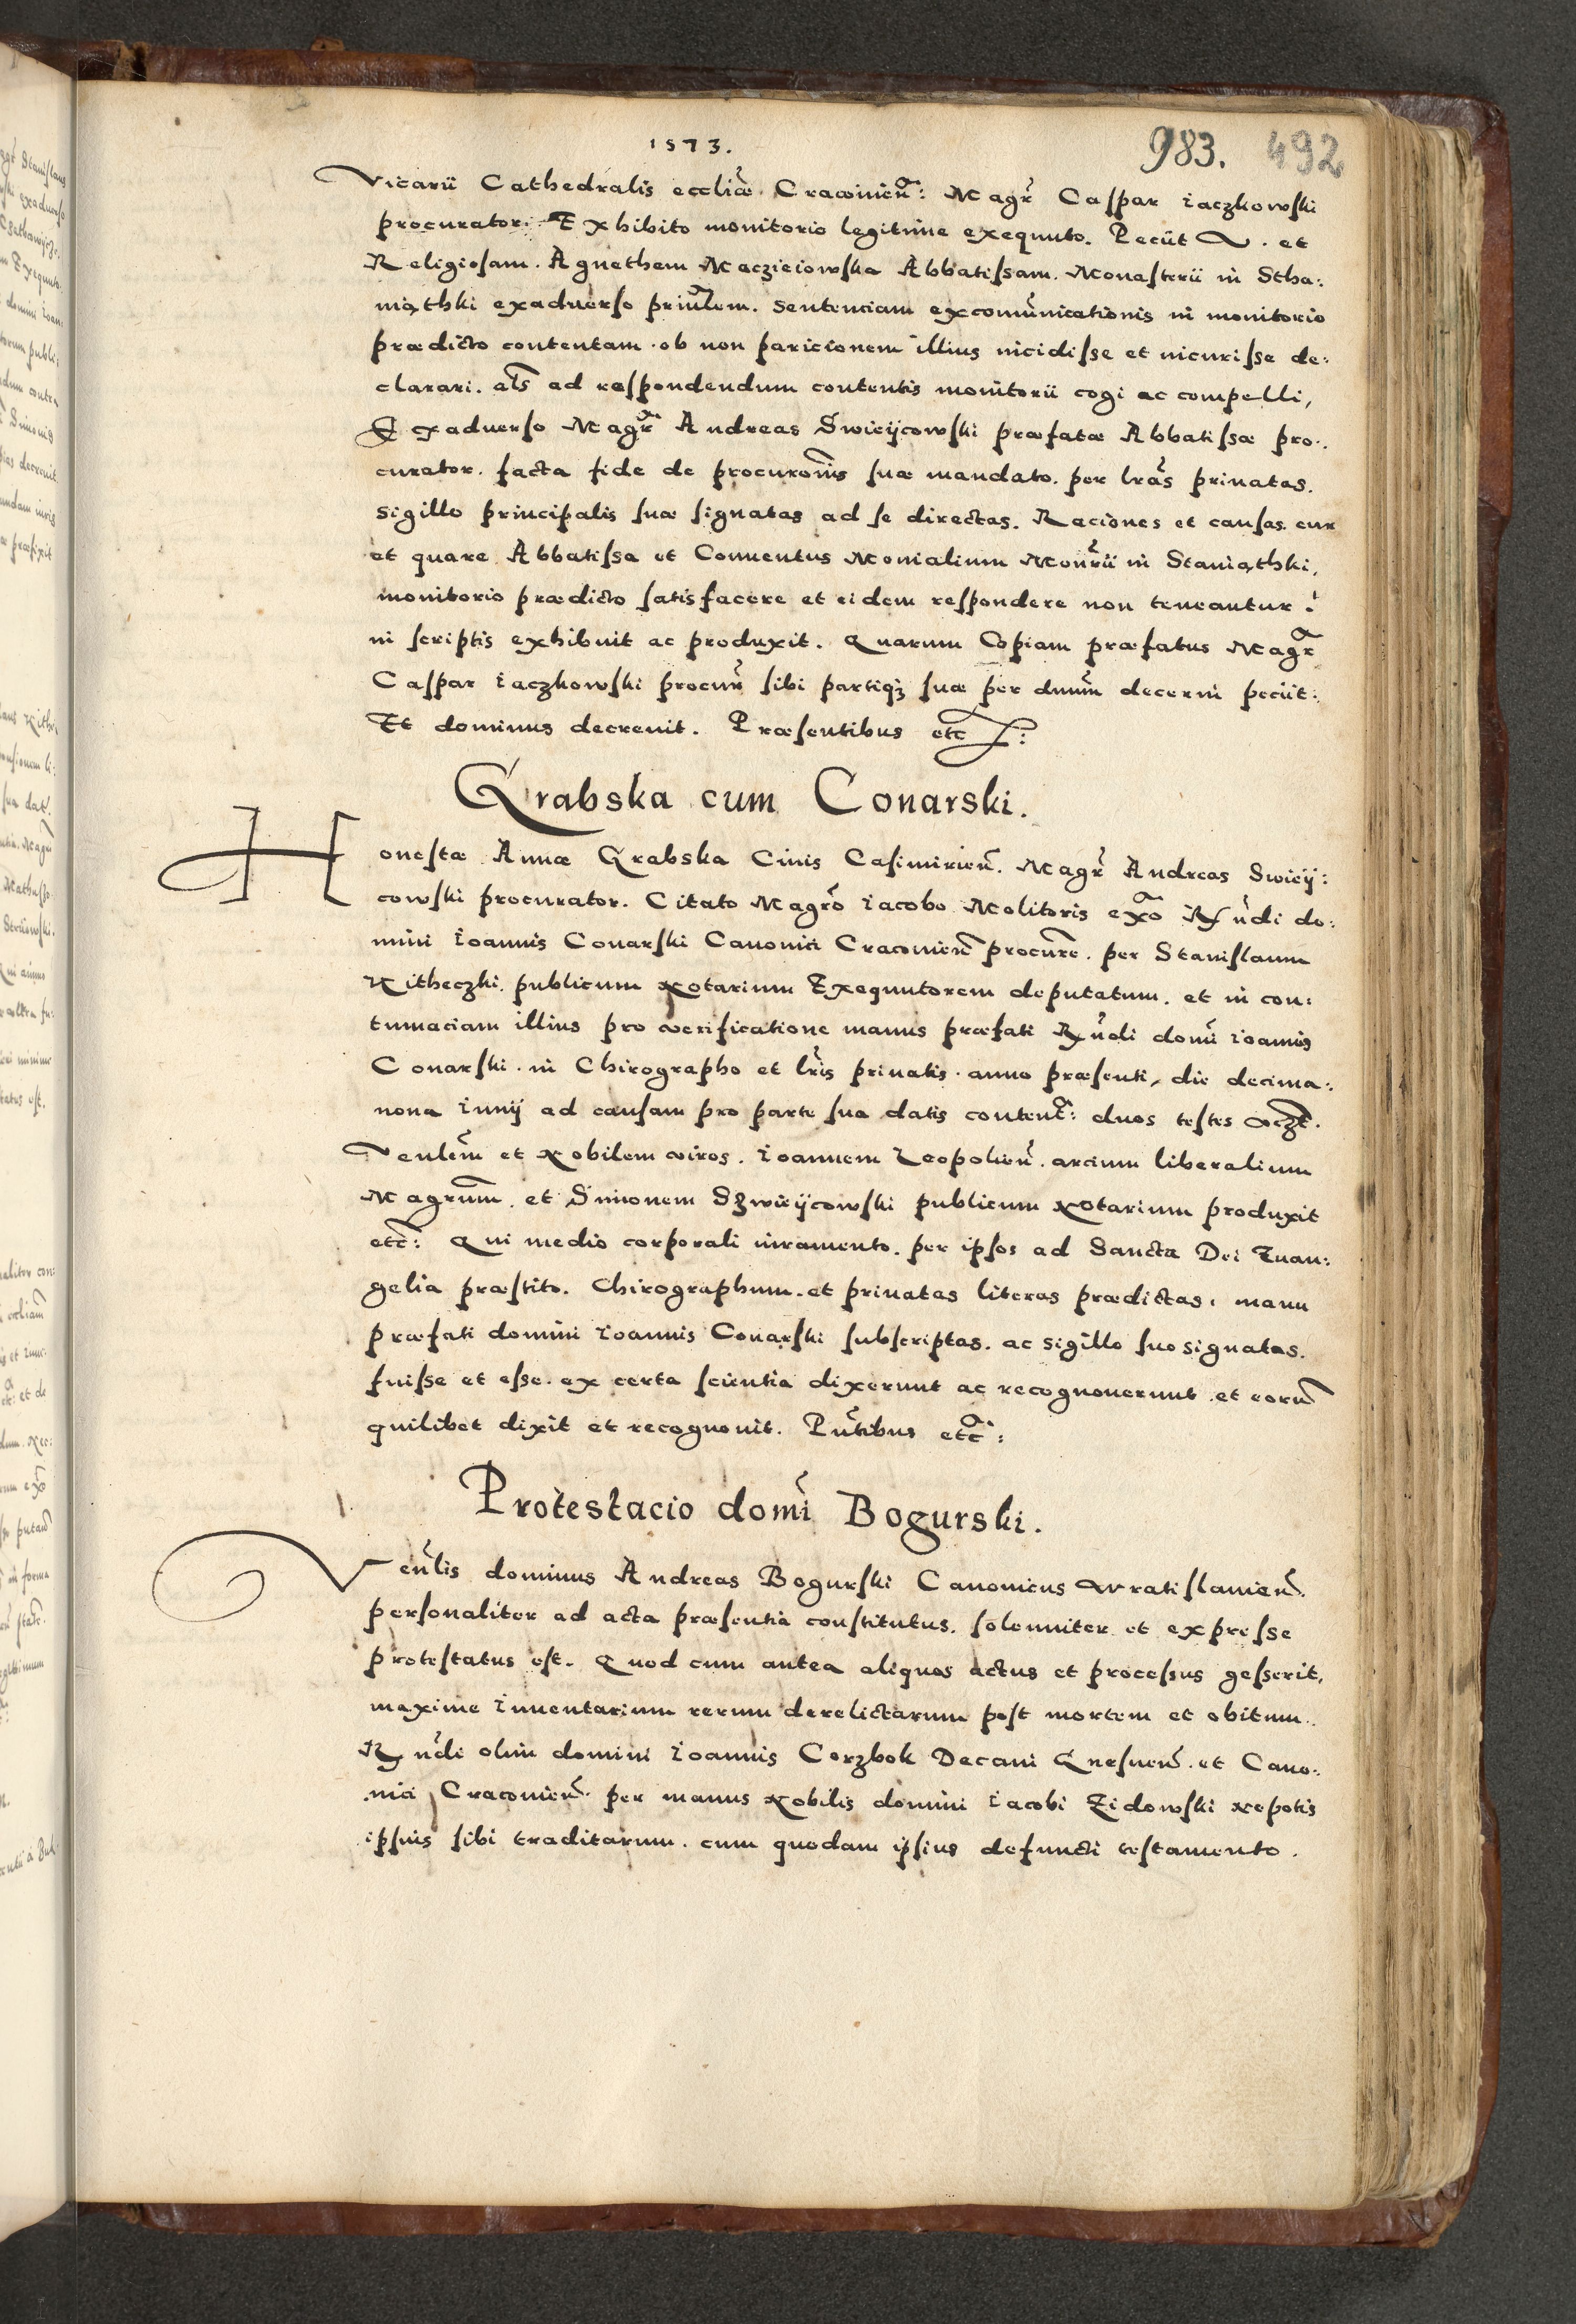 1573.
983. 492
Vicarii Cathedralis eccliæ Cracovien̄: Magr̄ Caspar Iaczkowski
procurator. Exhibito monitorio legitime exequuto. Peciit V. et
Religiosam. Agnethem Macziciowska Abbatissam. Monasterii in Stha:
niąthki exadverso prin̄lem. Sentenciam excomūnicationis in monitorio
prædicto contentam. ob non paricionem illius incidisse et incurisse de:
clarari. als̄ ad respondendum contentis monitorii cogi ac compelli,
Et exadverso Magr̄ Andreas Swieijcowski præfatæ Abbatissæ pro:
curator. facta fide de procurōnis suæ mandato. per lrās privatas.
Sigillo principalis suæ signatas ad se directas. Raciones et causas. cur
et quare Abbatissa et Conventus Monialium Monr̄ii in Staniąthki,
monitorio prædicto satisfacere et eidem respondere non teneantur:
in scriptis exhibuit ac produxit. Quarum Copiam præfatus Magr̄
Caspar Iaczkowski procur̄ sibi partiqꝫ suæ per dnūm decerni peciit:
Et dominus decrevit. Præsentibus etc̄:
Grabska cum Conarski.
Honestæ Annæ Grabska Civis Casimirien̄. Magr̄ Andreas Swieij:
cowski procurator. Citato Magrō Iacobo Molitoris exo R̄n̄di do:
mini Ioannis Conarski Canonici Cracovien̄ procurē. per Stanislaum
Kitheczki, publicum Notarium Exequutorem deputatum. et in con:
tumaciam illius pro verificatione manus præfati R̄n̄di domī Ioannis
Conarski. in Chirographo et lr̄is privatis. anno præsenti, die decima:
nona Iunij ad causam pro parte sua datis content̄: duos testes vczt.
Venlēm et Nobilem viros. Ioannem Leopolien̄. arcium liberalium
Magrum̄. et Simonem Szwieijcowski publicum Notarium produxit
etc̄: Qui medio corporali iuramento. per ipsos ad Sancta Dei Evan:
gelia præstito. Chirographum. et privatas literas prædictas, manu
præfati domini Ioannis Conarski subscriptas. ac sigillo suo signatas.
fuisse et esse. ex certa scientia dixerunt ac recognoverunt. et eorum̄
quilibet dixit et recognovit. Pn̄tibus etc̄:
Protestacio domī Bogurski.
Ven̄lis dominus Andreas Bogurski Canonicus Wratislavien̄.
personaliter ad acta præsentia constitutus. solenniter et expresse
protestatus est. Quod cum antea aliquos actus et processus gesserit,
maxime Inventarium rerum derelictarum post mortem et obitum.
R̄n̄di olim domini Ioannis Cerzbok Decani Gnesnen̄. et Cano:
nici Cracovien̄. per manus Nobilis domini Iacobi Zidowski Nepotis
ipsius sibi traditarum. cum quodam ipsius defuncti testamento.